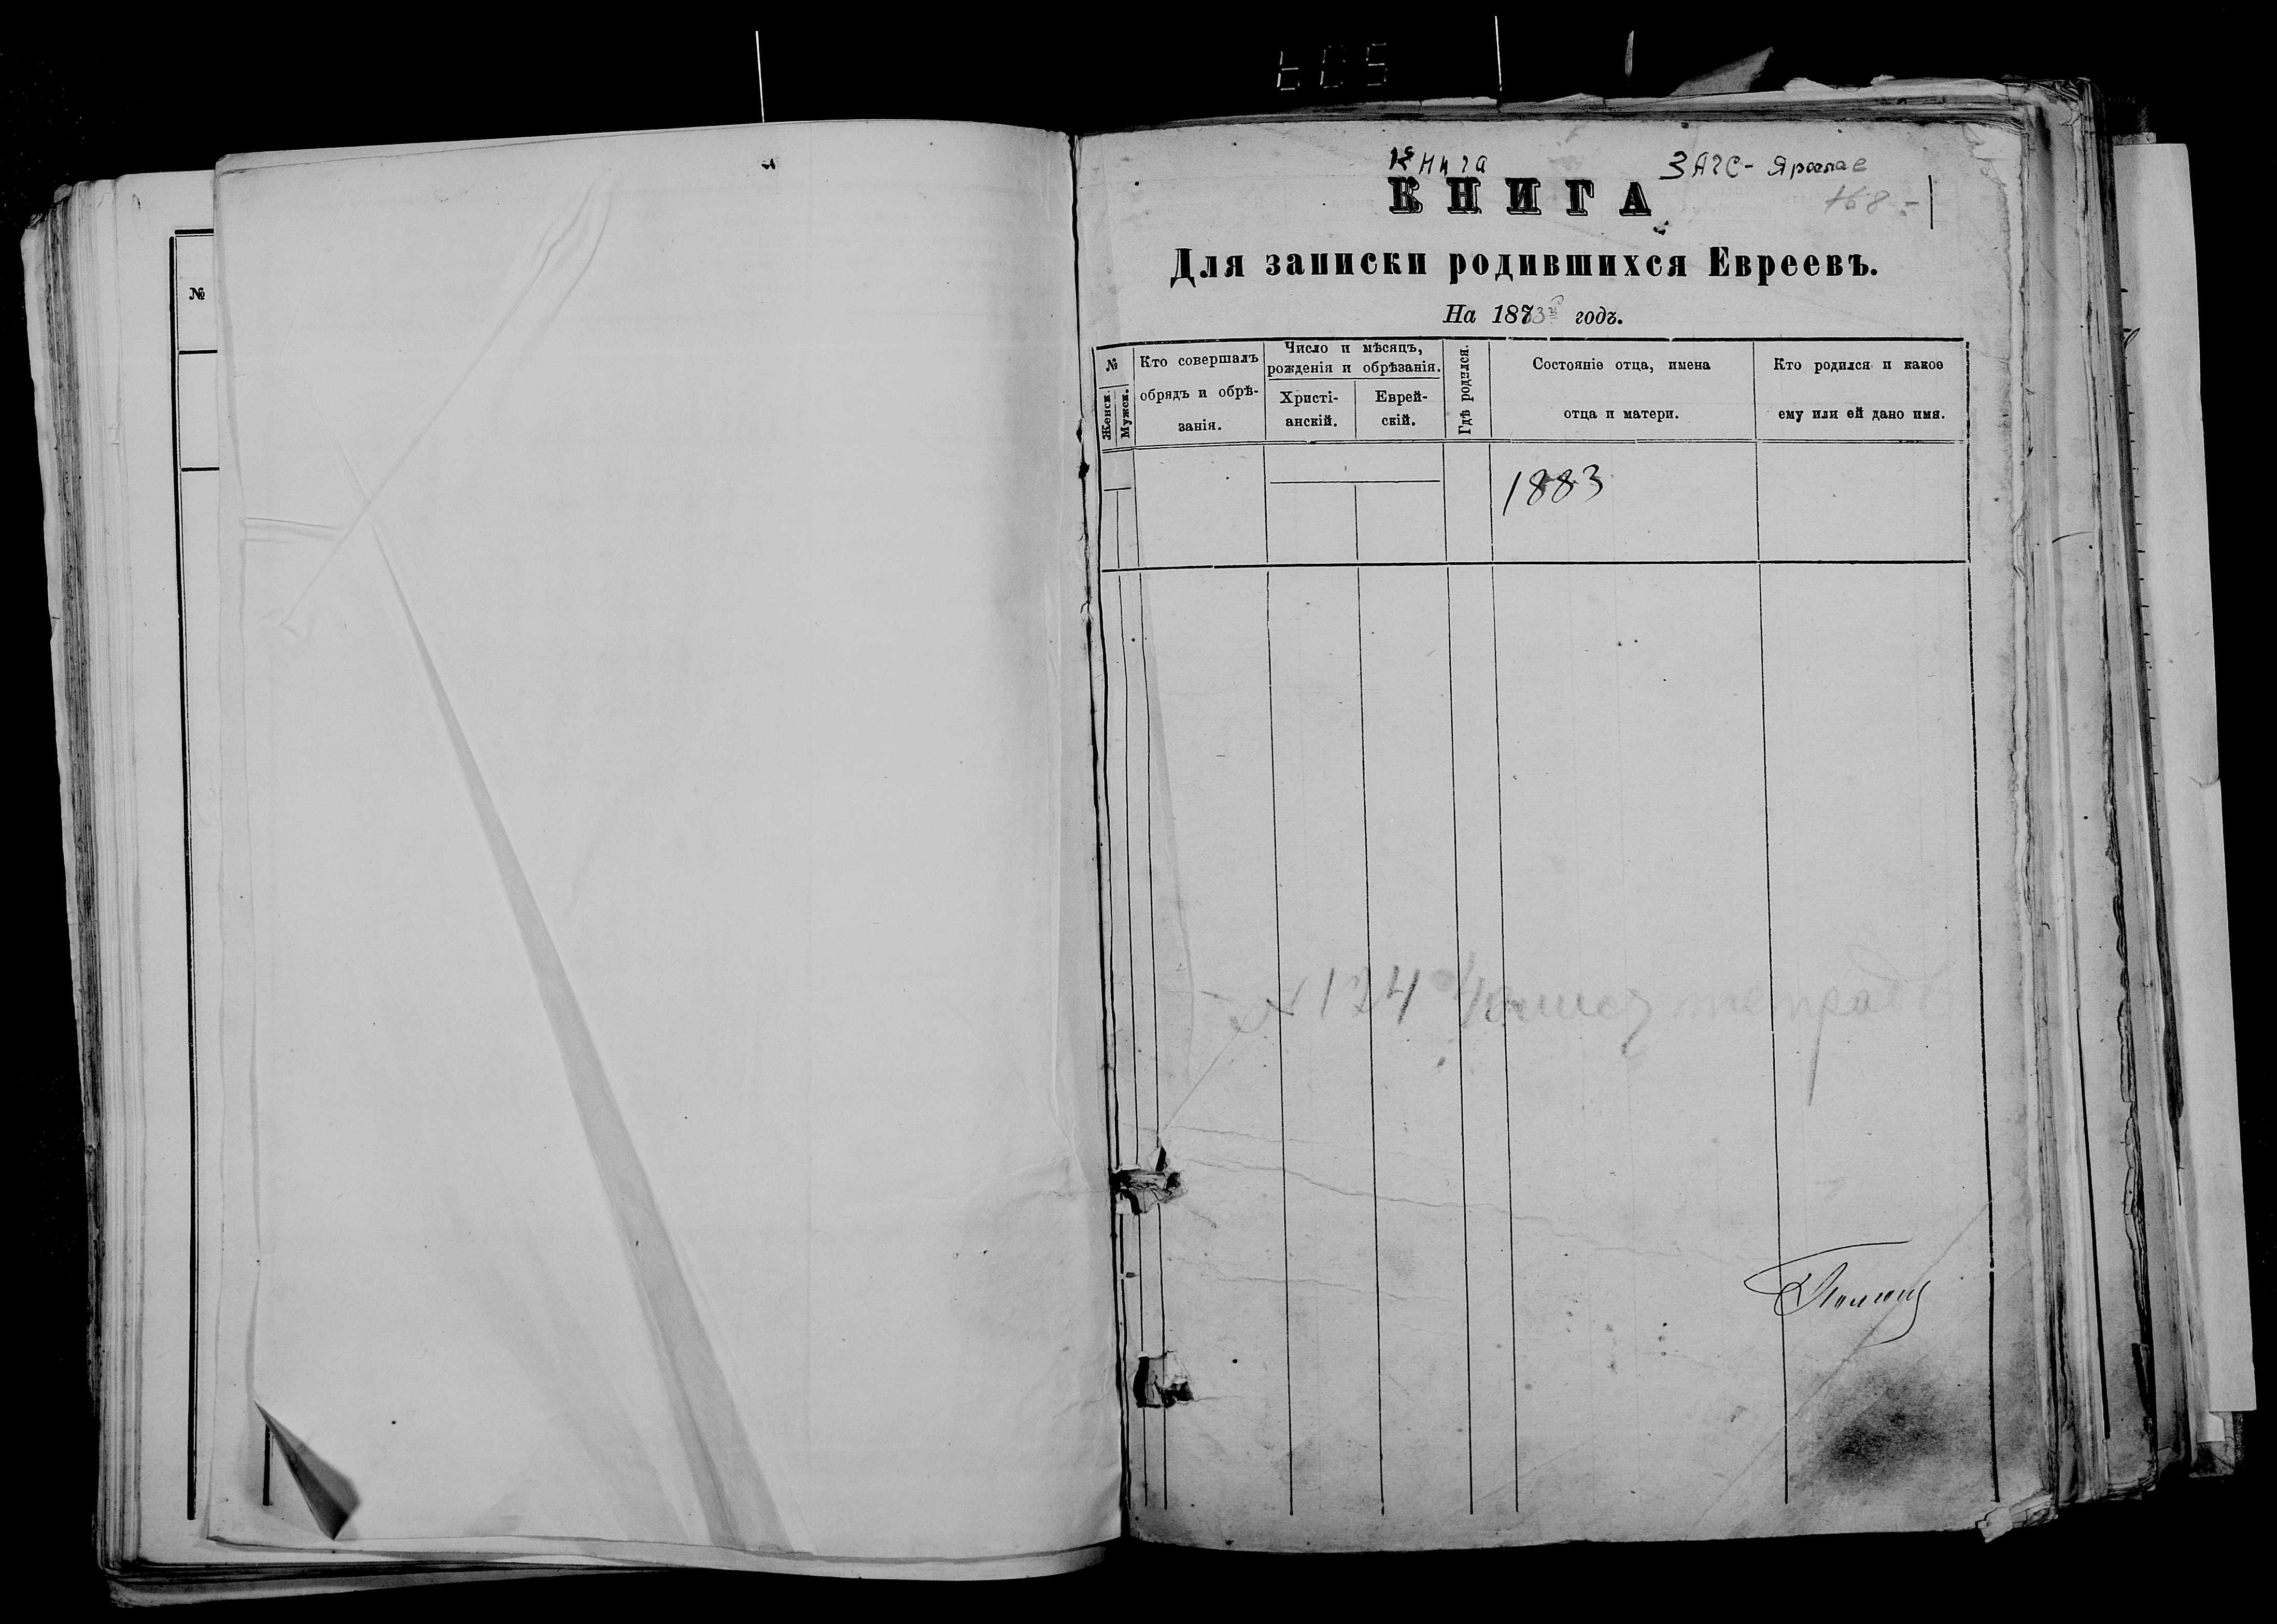 №
Книга
ЗАГС - Ярослав
168
КНИГА
Для записки родившихся Евреевъ.
На 1883й годъ.
№
Женск.
Мужск.
Кто совершалъ
обрядъ и обрѣ-
занія.
Число и мѣсяцъ,
рожденія и обрѣзанія.
Христі-
анскій.
Еврей-
скій.
Гдѣ родился.
Состояніе отца, имена
отца и матери.
Кто родился и какое
ему или ей дано имя.
1883
№ 124